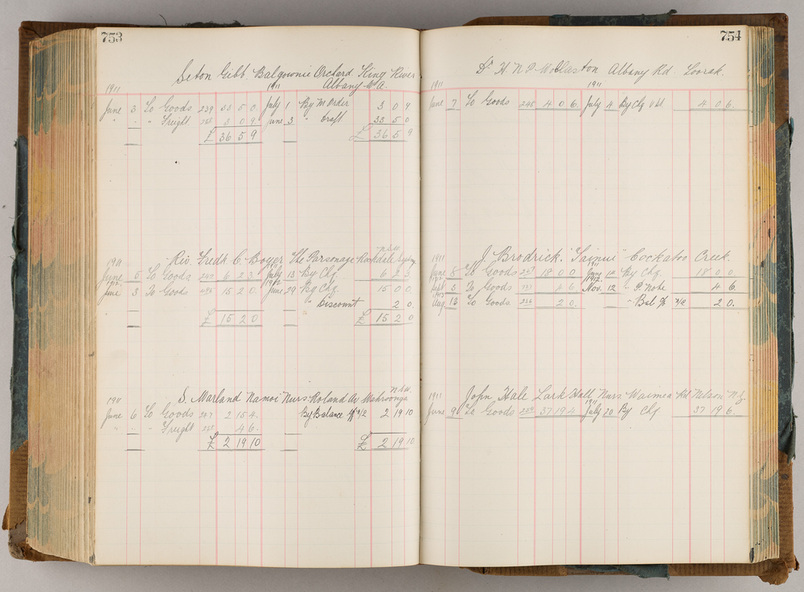 753
Seton Gibb Balgownie Orchard King River
Albany W.A.
1911 1911
June 3 To Goods 239 33 5 0 July 1 By M Order 3 0 9
" " " Freight 3 0 9 June 3 " Draft 33 5 0
£ 36 5 9 £ 36 5 9
N.S.W.
1911 Rev. Fredk C. Boyer The Parsonage Rockdale Sydney
June 5 To Goods 6 2 3 July 13 By Chq 6 2 3
1912 1912
June 3 To Goods 15 2 0 June 29 By Chq 15 0 0
" Discount 2 0
£ 15 2 0 £ 15 2 0
N.S.W.
1911 S. Marland Namoi Nurs Roland Av Wahroonga
June 6 To Goods 2 15 4 By Balance 2 19 10
" " " Freight 4 6
£ 2 19 10 £ 2 19 10
754
Dr H N P Wollaston Albany Rd Toorak
1911 1911
June 7 To Goods 4 0 6 July 4 By Chq 4 0 6
1911 J. Brodrick "Tainui" Cockatoo Creek
1911
June 8 To Goods 18 0 0 June 12 By Chq 18 0 0
1912
Sept 5 To Goods 4 6 Nov. 12 " P. Note 4 6
Aug 13 To Goods 2 0 " Bal 2 0
1911 John Hale Lark Hall Nurs Waimea Rd Nelson N.Z.
1911
June 9 To Goods 37 19 6 July 20 By Chq 37 19 6